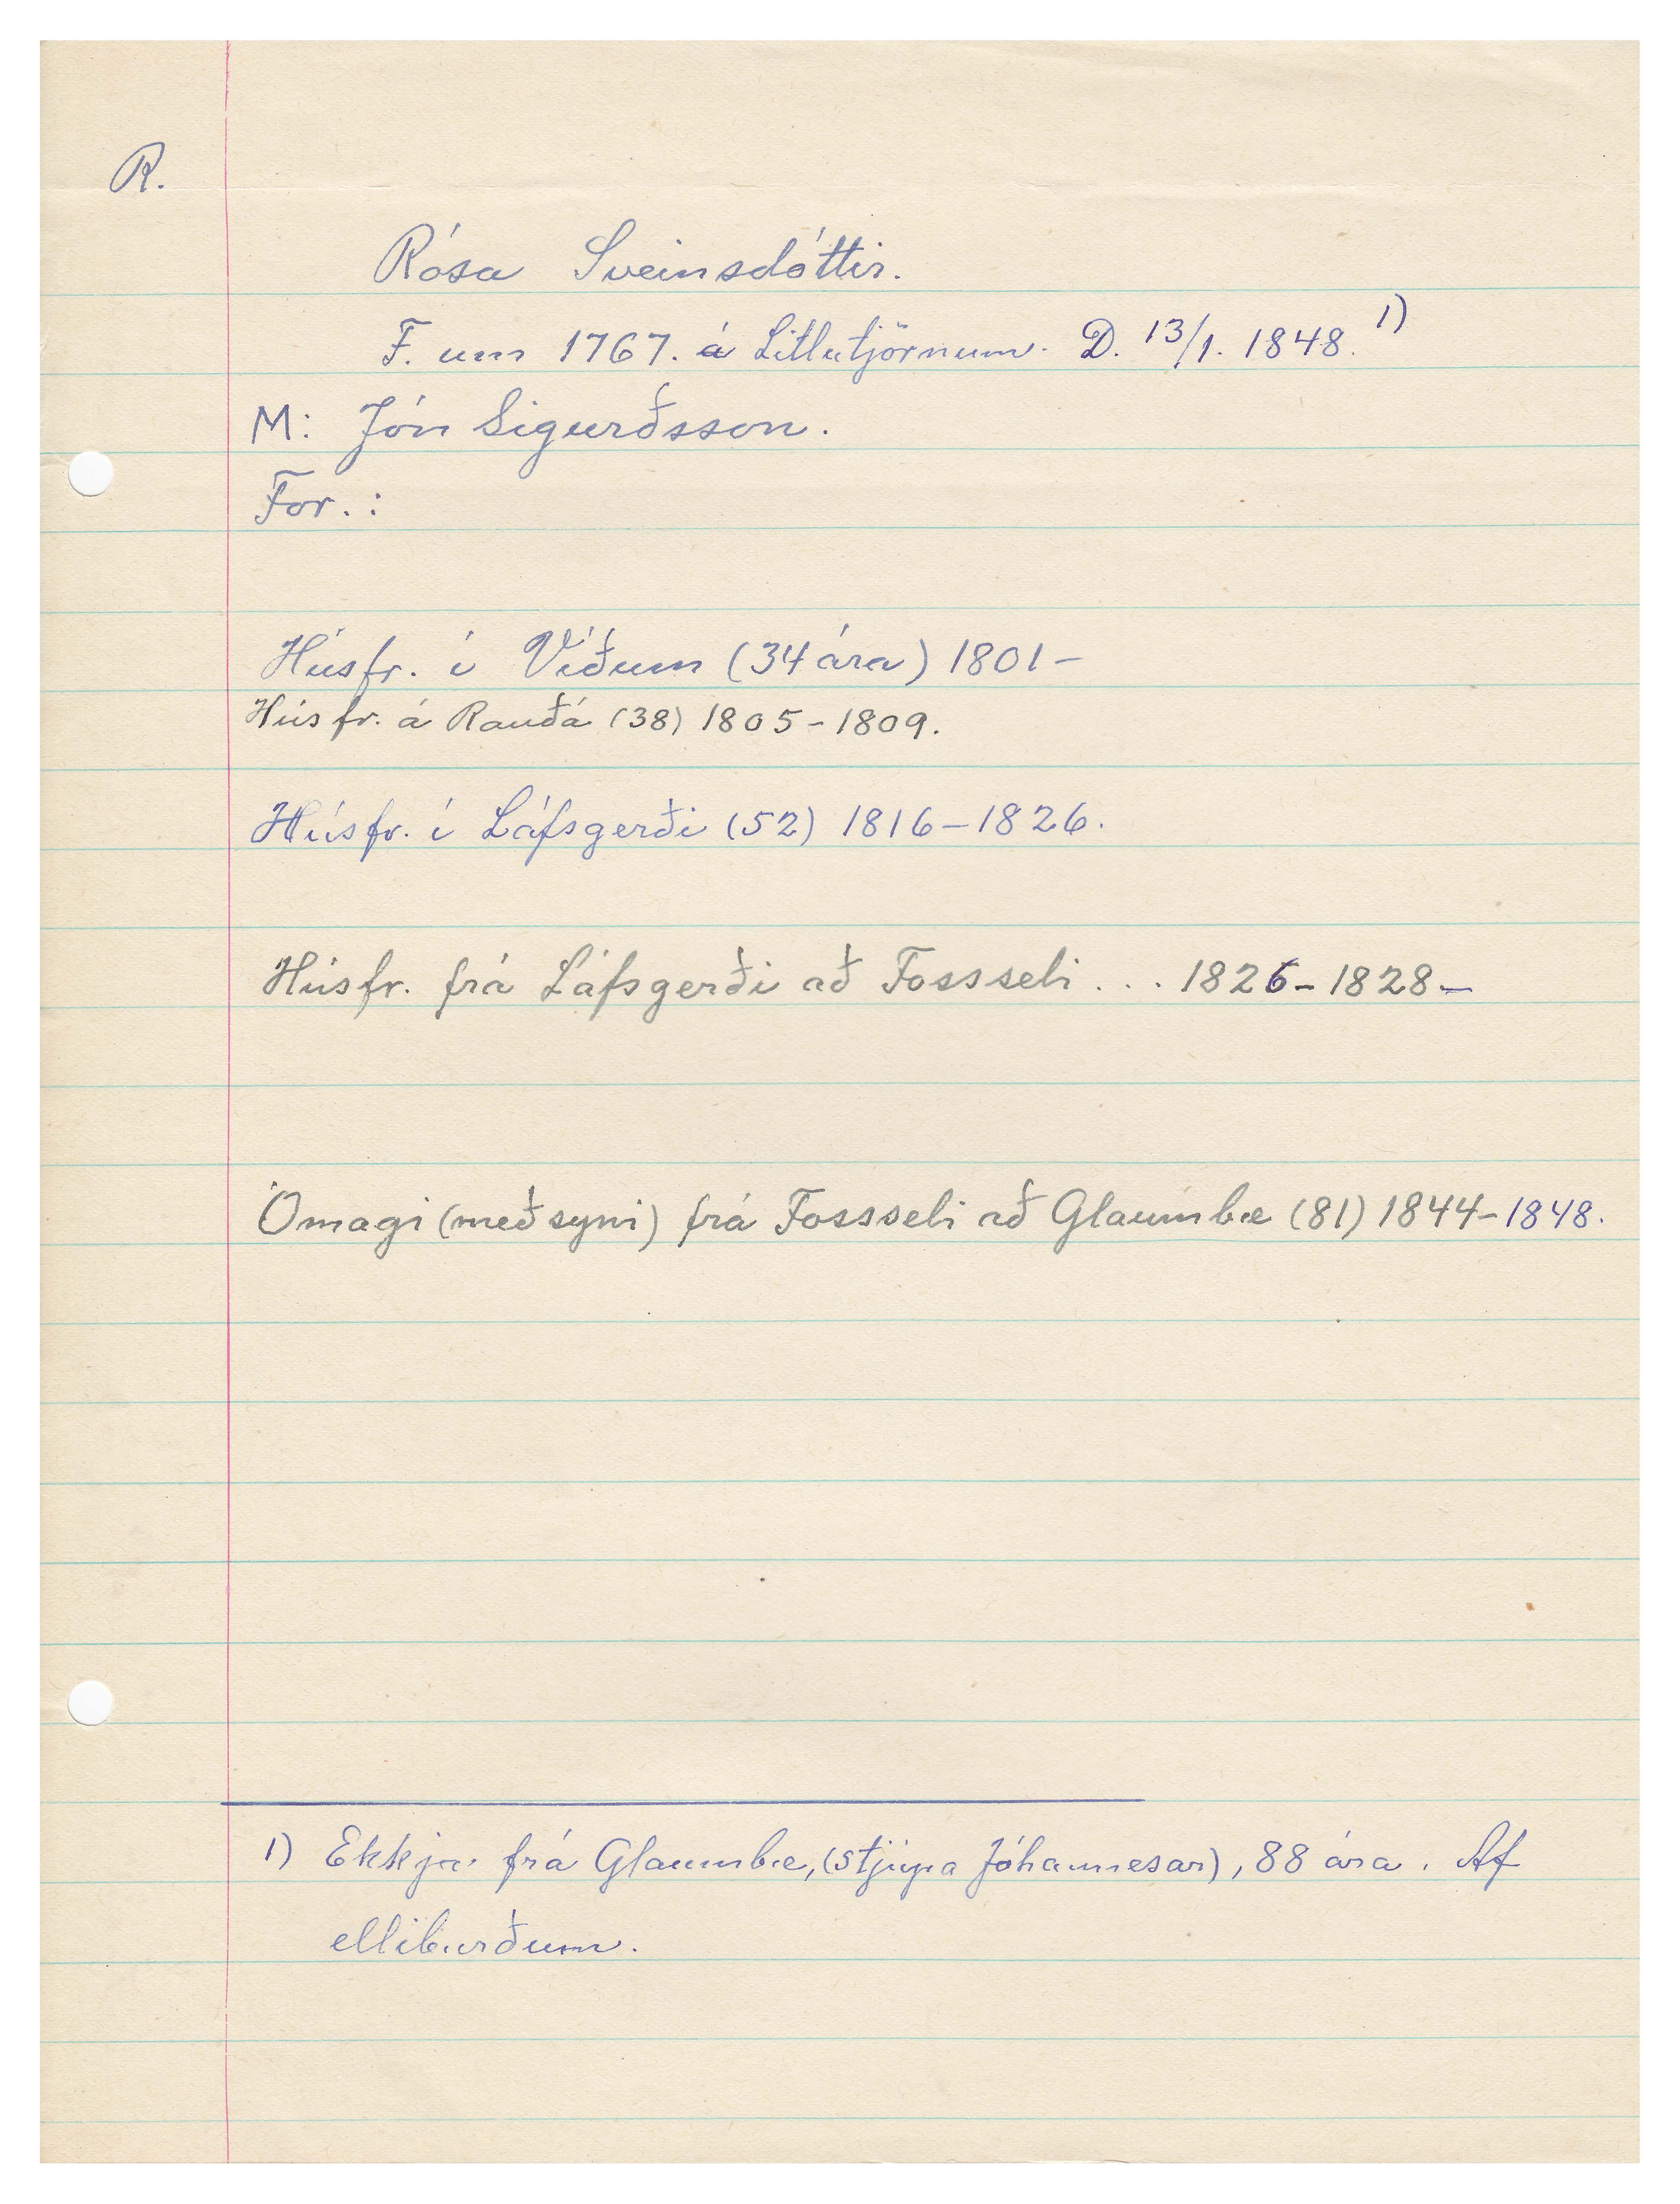 R.
Rósa Sveinsdóttir.
F. um 1767. á Litlutjörnum. D. 13/1. 1848. 1)
M: Jón Sigurðsson.
For.:
Húsfr. í Víðum (34 ára) 1801-
Húsfr. á Rauðá (38) 1805-1809.
Húsfr. í Láfsgerði (52) 1816-1826.
Húsfr. frá Láfsgerði að Fossseli ... 1826-1828-
Ómagi (með syni) frá Fossseli að Glaumbæ (81) 1844-1848.
1) Ekkja frá Glaumbæ, (stjúpa Jóhannesar), 88 ára. Af
elliburðum.